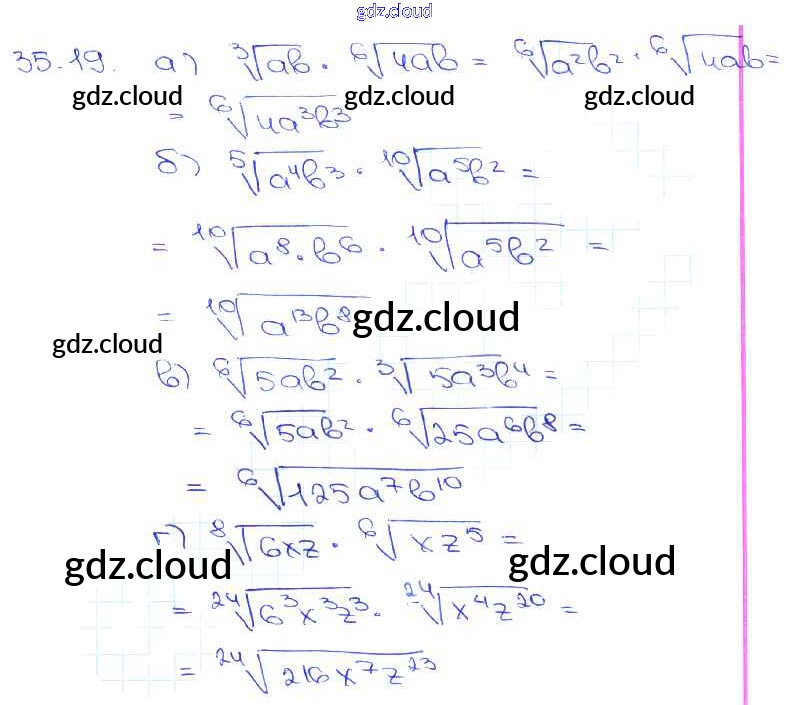 gdz.cloud
35.19. а) ∛ab · ⁶√4ab = ⁶√a²b² · ⁶√4ab =
gdz.cloud gdz.cloud gdz.cloud
= ⁶√4a³b³
б) ⁵√a⁴b³ · ¹⁰√a⁵b² =
= ¹⁰√a⁸·b⁶ · ¹⁰√a⁵b² =
= ¹⁰√a¹³b⁸ gdz.cloud
gdz.cloud
в) ⁶√5ab² · ∛5a³b⁴ =
= ⁶√5ab² · ⁶√25a⁶b⁸ =
= ⁶√125a⁷b¹⁰
г) ⁸√6xz · ⁶√xz⁵ =
gdz.cloud gdz.cloud
= ²⁴√6³x³z³ · ²⁴√x⁴z²⁰ =
= ²⁴√216x⁷z²³